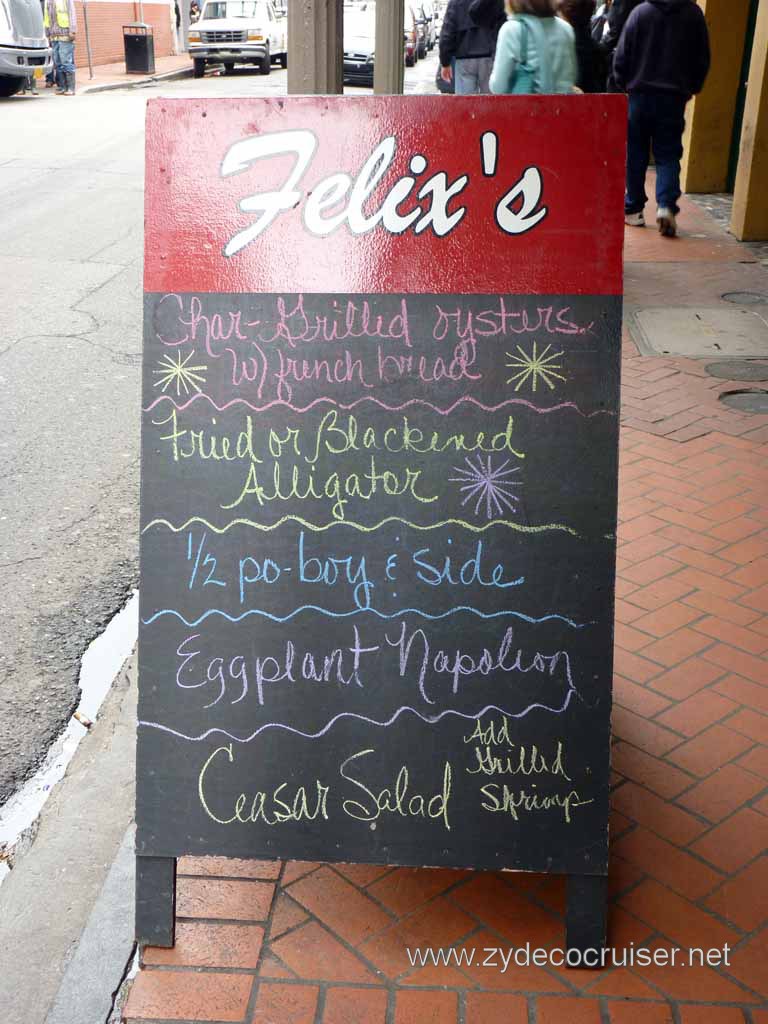 Felix's
Char-Grilled oysters
w/ french bread
Fried or Blackened
Alligator
1/2 po-boy & side
Eggplant Napoleon
Ceasar Salad
Add
Grilled
Shrimp
www.zydecocruiser.net